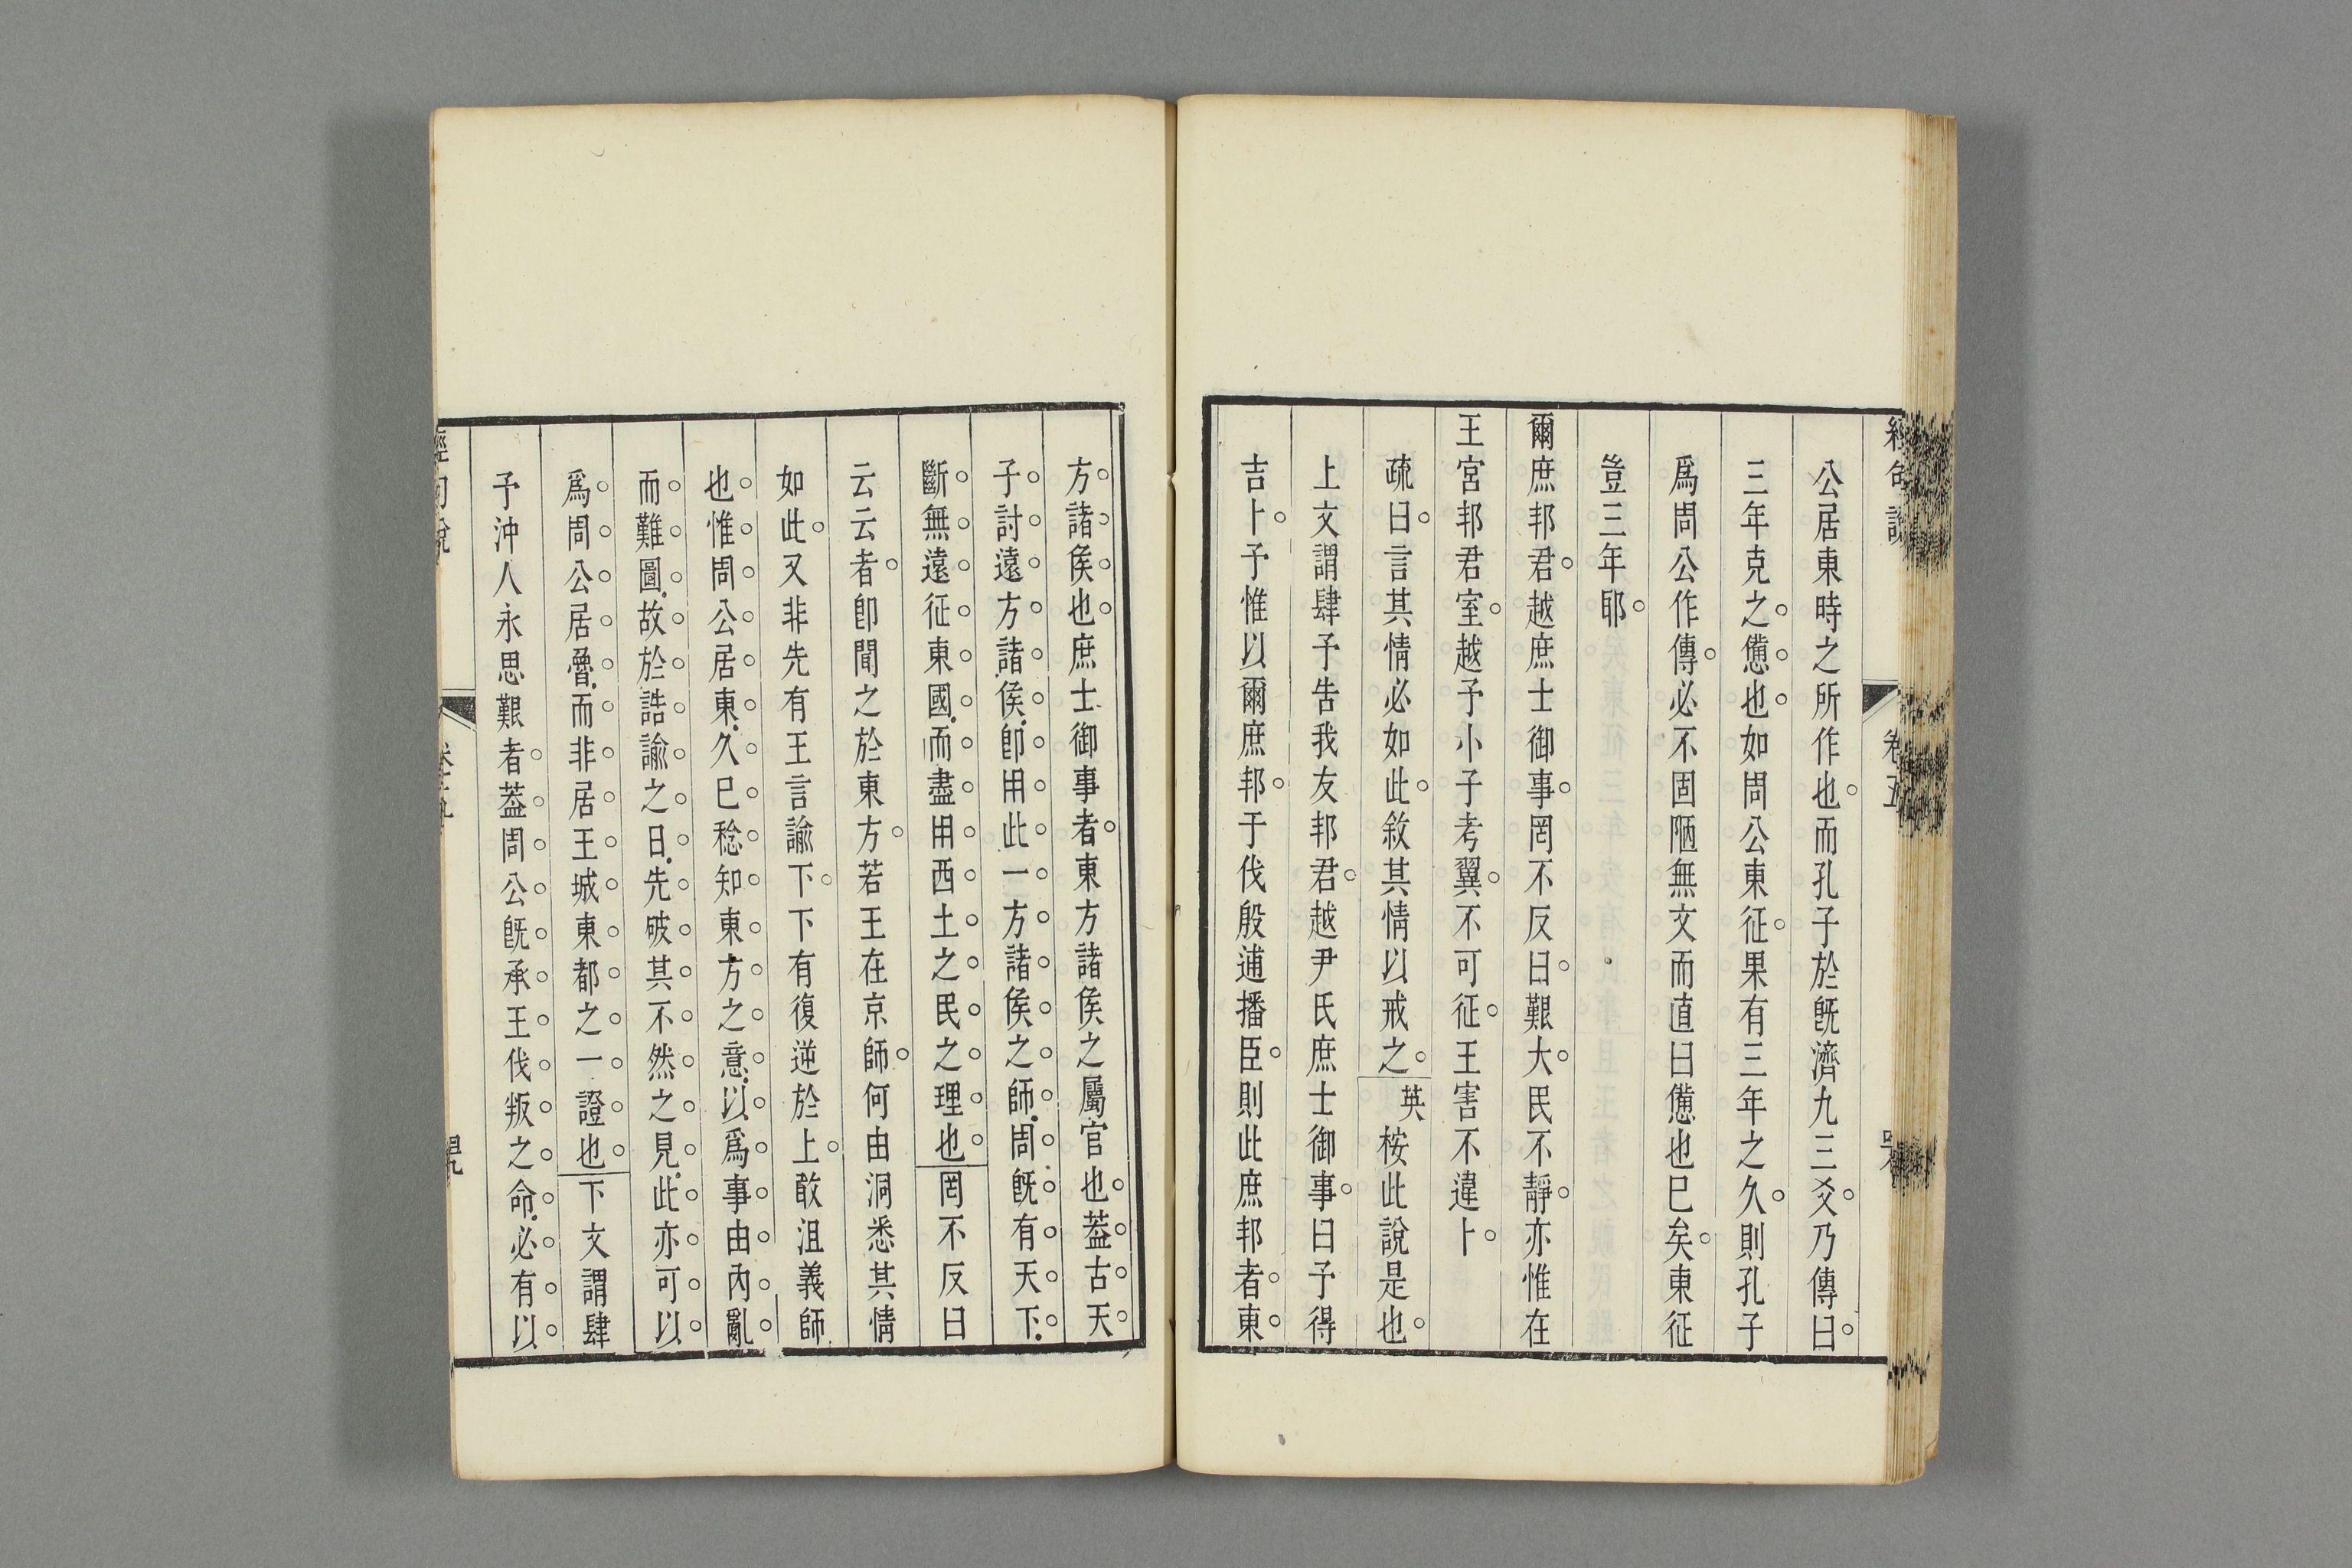 經句說
卷五
公居東時之所作也而孔子於旣濟九三爻乃傳曰
三年克之憊也如周公東征果有三年之久則孔子
爲周公作傳必不固陋無文而直曰憊也巳矣東征
豈三年耶
爾庶邦君越庶士御事罔不反曰艱大民不靜亦惟在
王宮邦君室越予小子考翼不可征王害不違卜
疏曰言其情必如此敘其情以戒之英桉此說是也
上文謂肆予告我友邦君越尹氏庶士御事曰予得
吉卜予惟以爾庶邦于伐殷逋播臣則此庶邦者東
方諸侯也庶士御事者東方諸侯之屬官也葢古天
子討遠方諸侯卽用此一方諸侯之師周旣有天下
斷無遠征東國而盡用西土之民之理也罔不反曰
云云者卽聞之於東方若王在京師何由洞悉其情
如此又非先有王言諭下下有復逆於上敢沮義師
也惟周公居東久巳稔知東方之意以爲事由內亂
而難圖故於誥諭之日先破其不然之見此亦可以
爲周公居魯而非居王城東都之一證也下文謂肆
予沖人永思艱者葢周公旣承王伐叛之命必有以